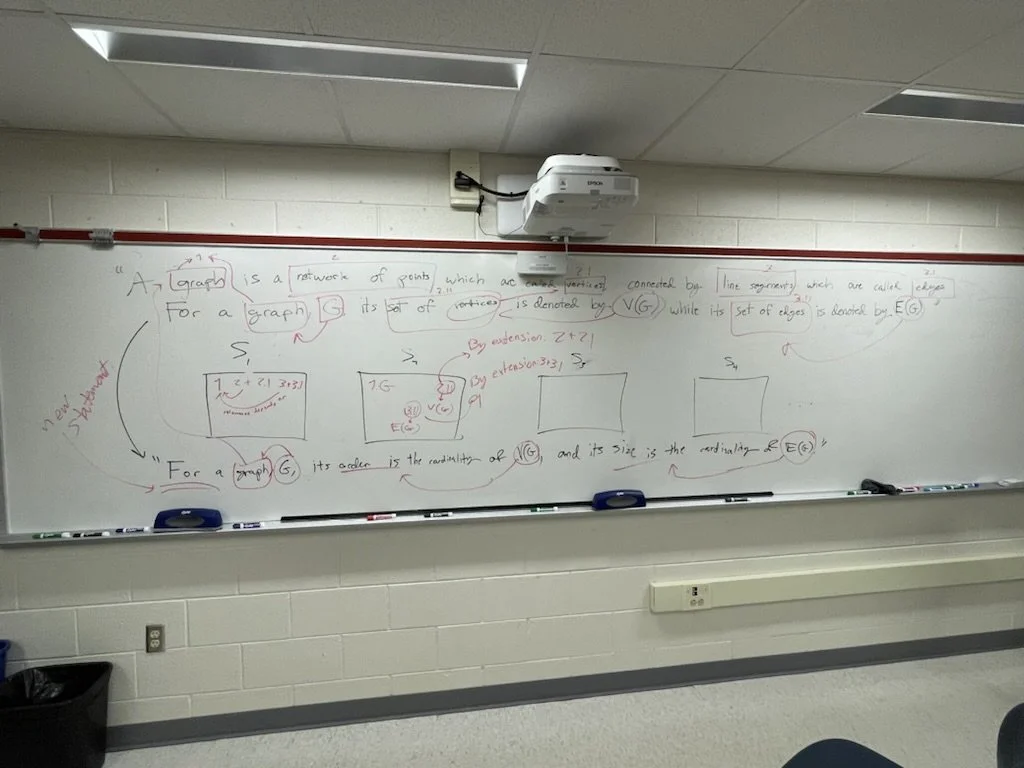 EPSON
1 2 2.1 3 3.1
"A graph is a network of points which are called vertices connected by line segments which are called edges
2.11 3.11
For a graph, G its set of vertices is denoted by V(G), while its set of edges is denoted by E(G) "
By extension: 2+2.1
S1 S2 S3 S4
By extension: 3+3.1
1 2 + 2.1 3+3.1
1. G 2.11
V(G)
3.11
E(G)
....
new statement
"For a graph G, its order is the cardinality of V(G), and its size is the cardinality of E(G)"